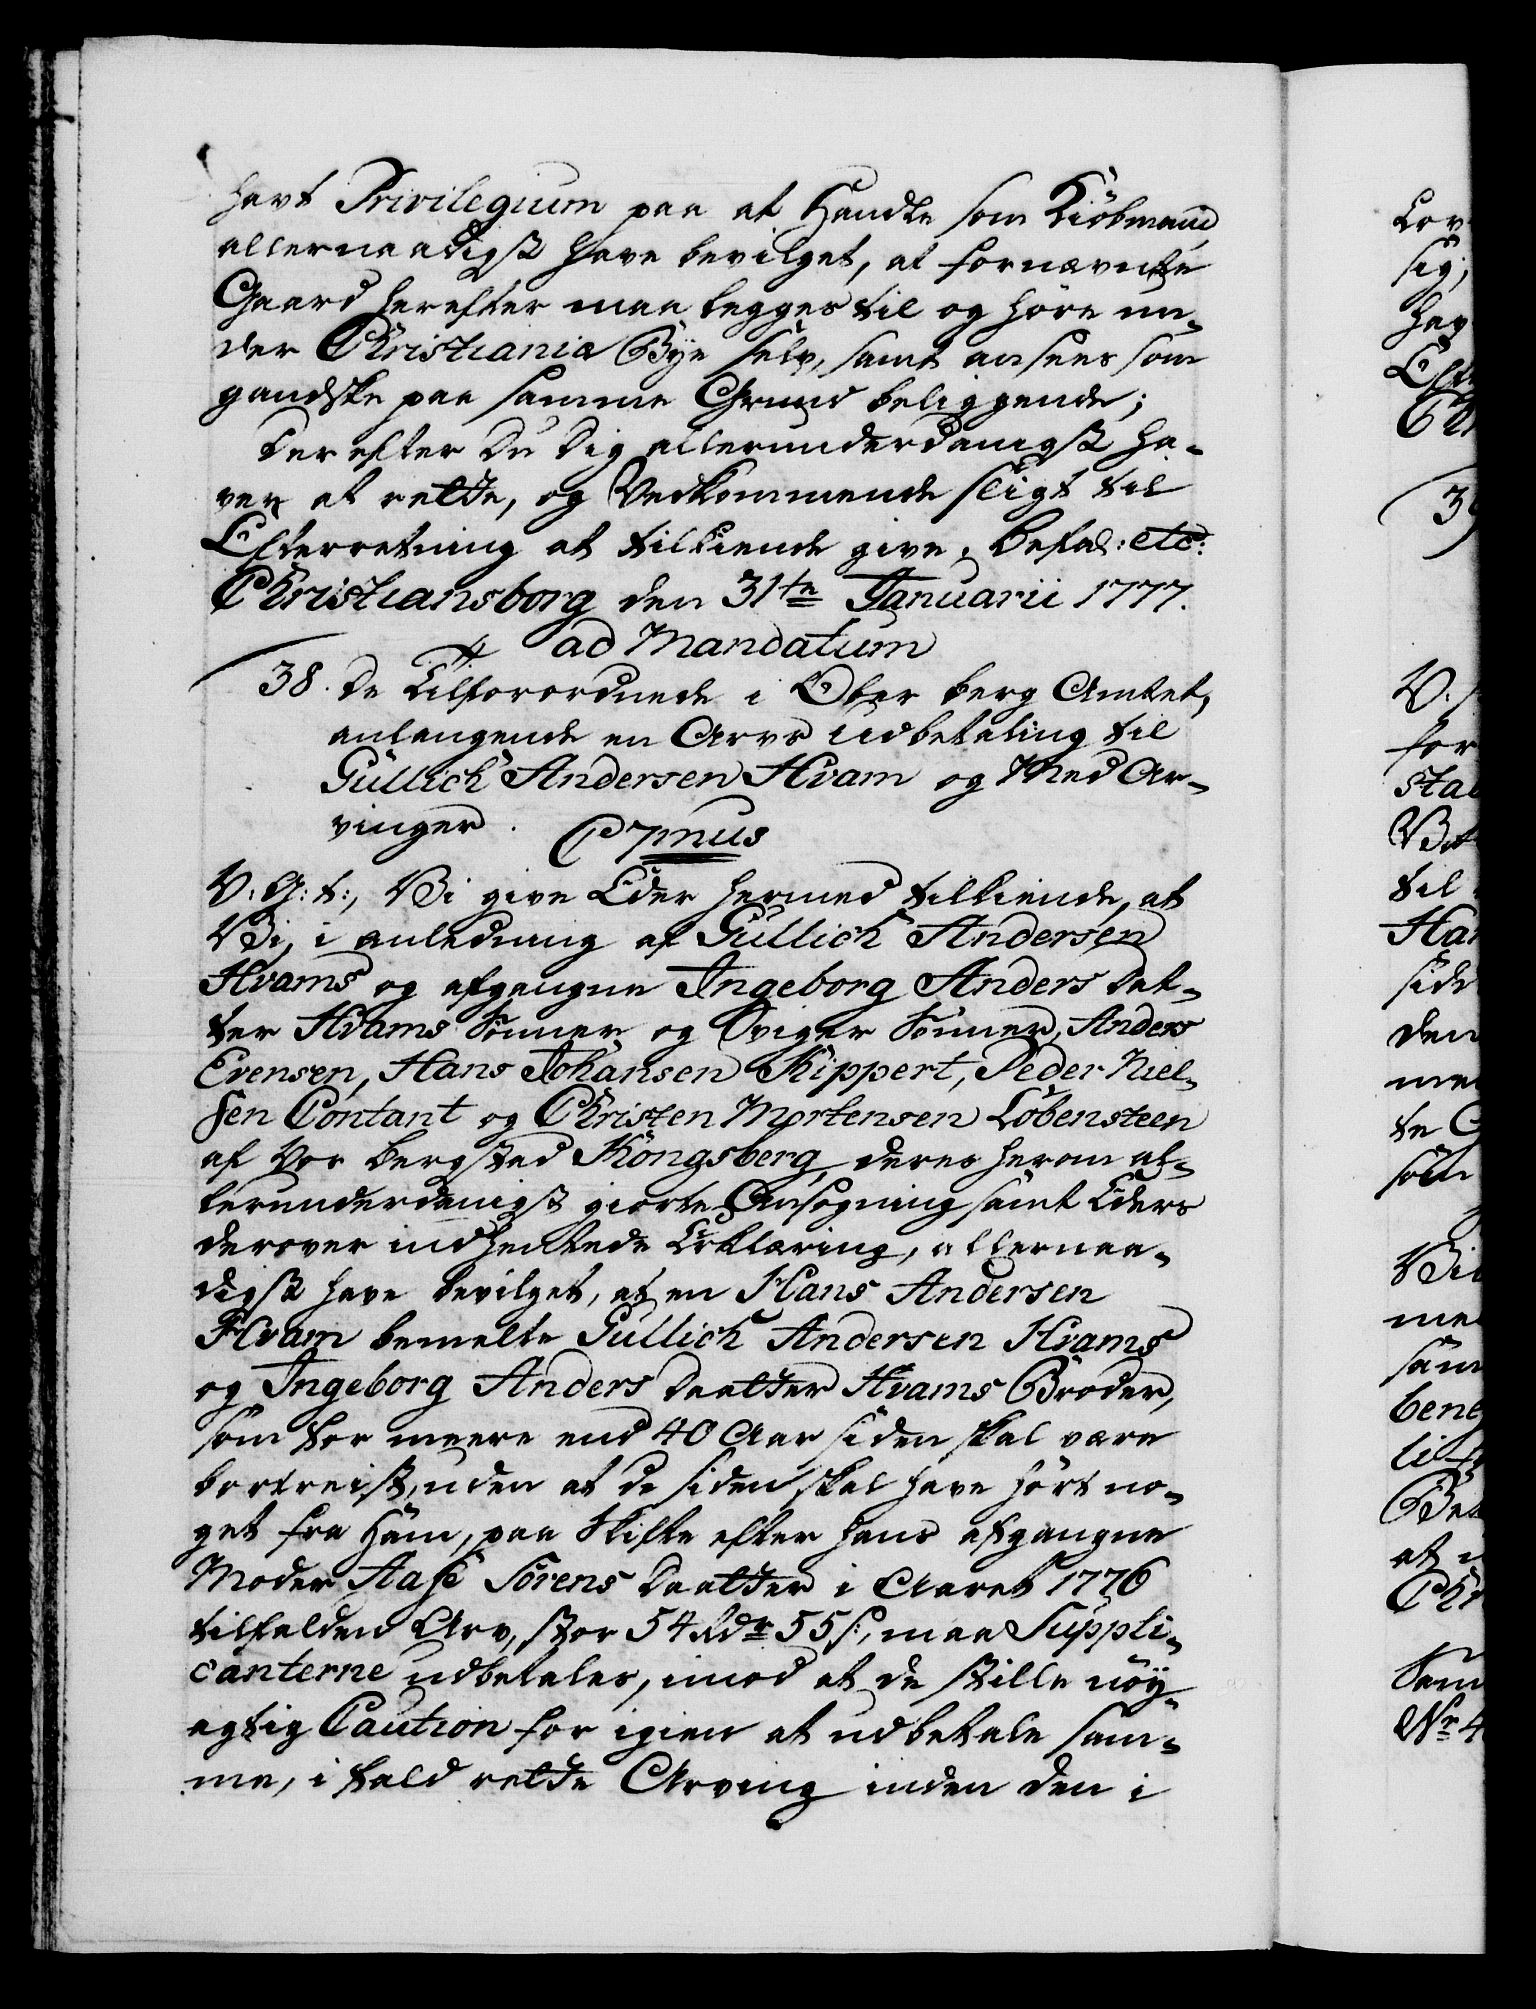 havt Privilegium paa at Handle som Kiöbmand,
allernaadigst have bevilget, at fornævnte
Gaard herefter maa legges til og höre un-
der Christiania Bye selv, samt ansees som
gandske paa samme Grund beliggende;
Derefter Du Dig allerunderdanigst ha-
ver at rette, og Vedkommende sligt til
Efterretning at tilkiende give. Befal: etc:
Christiansborg den 31te Januarii 1777.
ad Mandatum
38. De Tilforordnede i Ober berg Amtet,
anlangende en Arvs Udbetaling til
Gullich Andersen Hvam og Med Ar-
vinger.
C 7mus
V: G: t:, Vi give Eder hermed tilkiende, at
Vi, i anledning af Gullich Andersen
Hvams og afgangne Ingeborg Anders Dat-
ter Hvams Sönner og Sviger Sönner, Anders
Evensen, Hans Johansen Kippert, Peder Niel-
sen Contant og Christen Mortensen Löbensteen
af Vor Bergstad Kongsberg, deres herom al-
lerunderdanigst giorte Ansögning samt Eders
derover indhentede Erklæring, allernaa-
digst have bevilget, at en Hans Andersen
Hvam bemelte Gullich Andersen Hvams
og Ingeborg Anders Daatter Hvams Broder,
som for meere end 40 Aar siden skal være
bortreist, uden at de siden skal have hört no-
get fra Ham, paa Skifte efter hans afgangne
Moder Aase Sörens Daatter i Aaret 1776
tilfalden Arv, stor 54 Rdr 55 s:, maa Suppli-
canterne udbetales, imod at de stille nöy-
agtig Caution for igien at udbetale sam-
me, i fald rette Arving inden den i